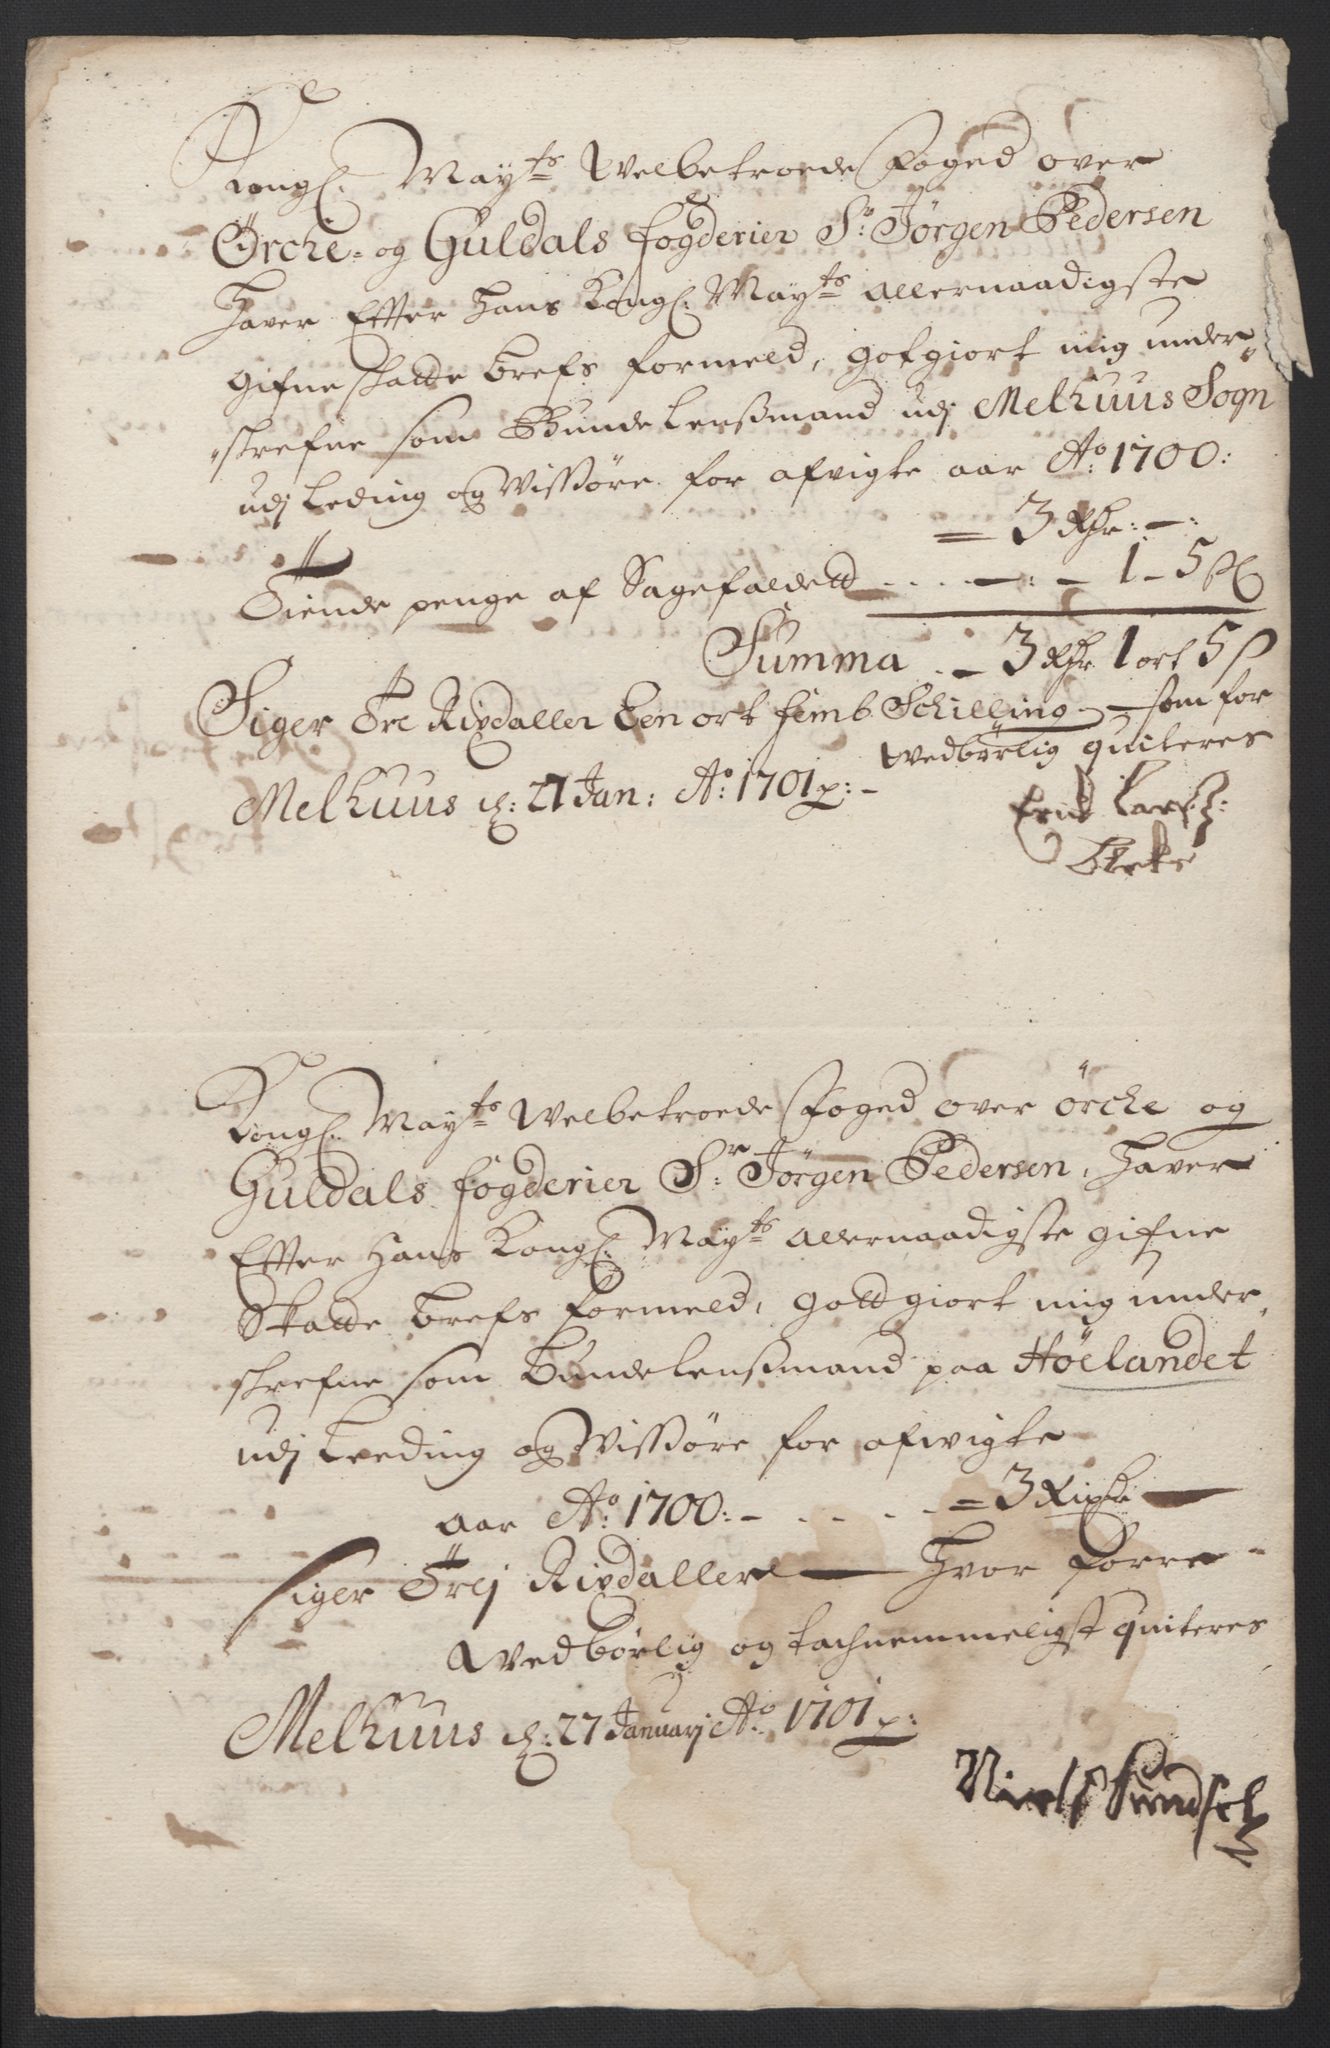 Kongl: Maÿts Welbetroede Foged over
Örche- og Guldals fogderier Sr: Jörgen Pedersen
Haver Effter Hans Kongl: Maÿts allernaadigste
gifne skatte brefs formeld, gotgiort mig under„
„skrefne som Bunde Lenßmand udj Melhuus Sogn
udj Leding og Wissöre for afvigte aar Ao: 1700:
= 3 Rdr: —:
Tiende penge af Sagefaldett - - - — : — 1 – 5 ß
Summa .. – 3 Rdr 1 ort 5 ß
Siger Tre Rixdaller Een ort femb Schilling — som for
Wedbörlig quiteres
Melhuus d: 27 Jan: Ao: 1701 p: -
Erich Larsz:
Kongl: Maÿts Welbetroede Foged over örche og
Guldals fogderier Sr: Jörgen Pedersen, Haver
Effter Hans Kongl: Maÿts allernaadigste gifne
Skatte brefs formeld, gott giort mig under„
skrefne som bunde lenßmand paa Höelandet
udj Leeding og Wissöre for afwigte
aar Ao: 1700: - - - - - = 3 Rixdr —
Siger Trej Rixdallere — Hvor forre -
Wedbörlig og tachnemmeligst quiteres
Melhuus d: 27 Januarj Ao: 1701 p:
Niels